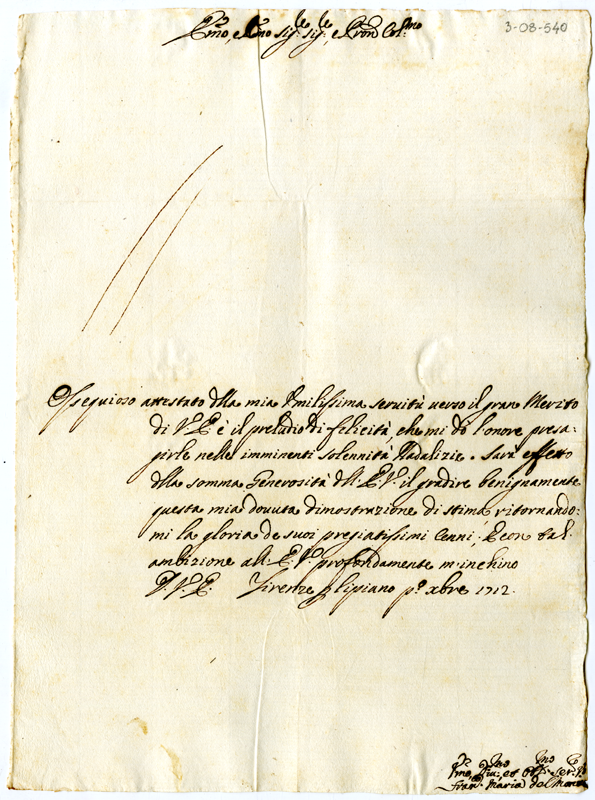 3-08-540
Emo, e Rmo sig:re sig:re, e Pron Col:mo
Ossequioso attestato dlla mia Umilissima seruitù uerso il gran Merito
di V. E. è il preludio di felicità, che mi dò l'onore presa-
girle nelle imminenti solennità Nadalizie. Sarà effetto
dlla somma Generosità dll: E. V. il gradire benignamente
questa mia douuta dimostrazione di stima, ritornando:
mi la gloria de suoi pregiatissimi Cenni; E con tal
ambizione all: E. V. profondamente m'inchino
D. V. E. Firenze p Lipiano p.o xbre 1712.
Fran.o Maria del